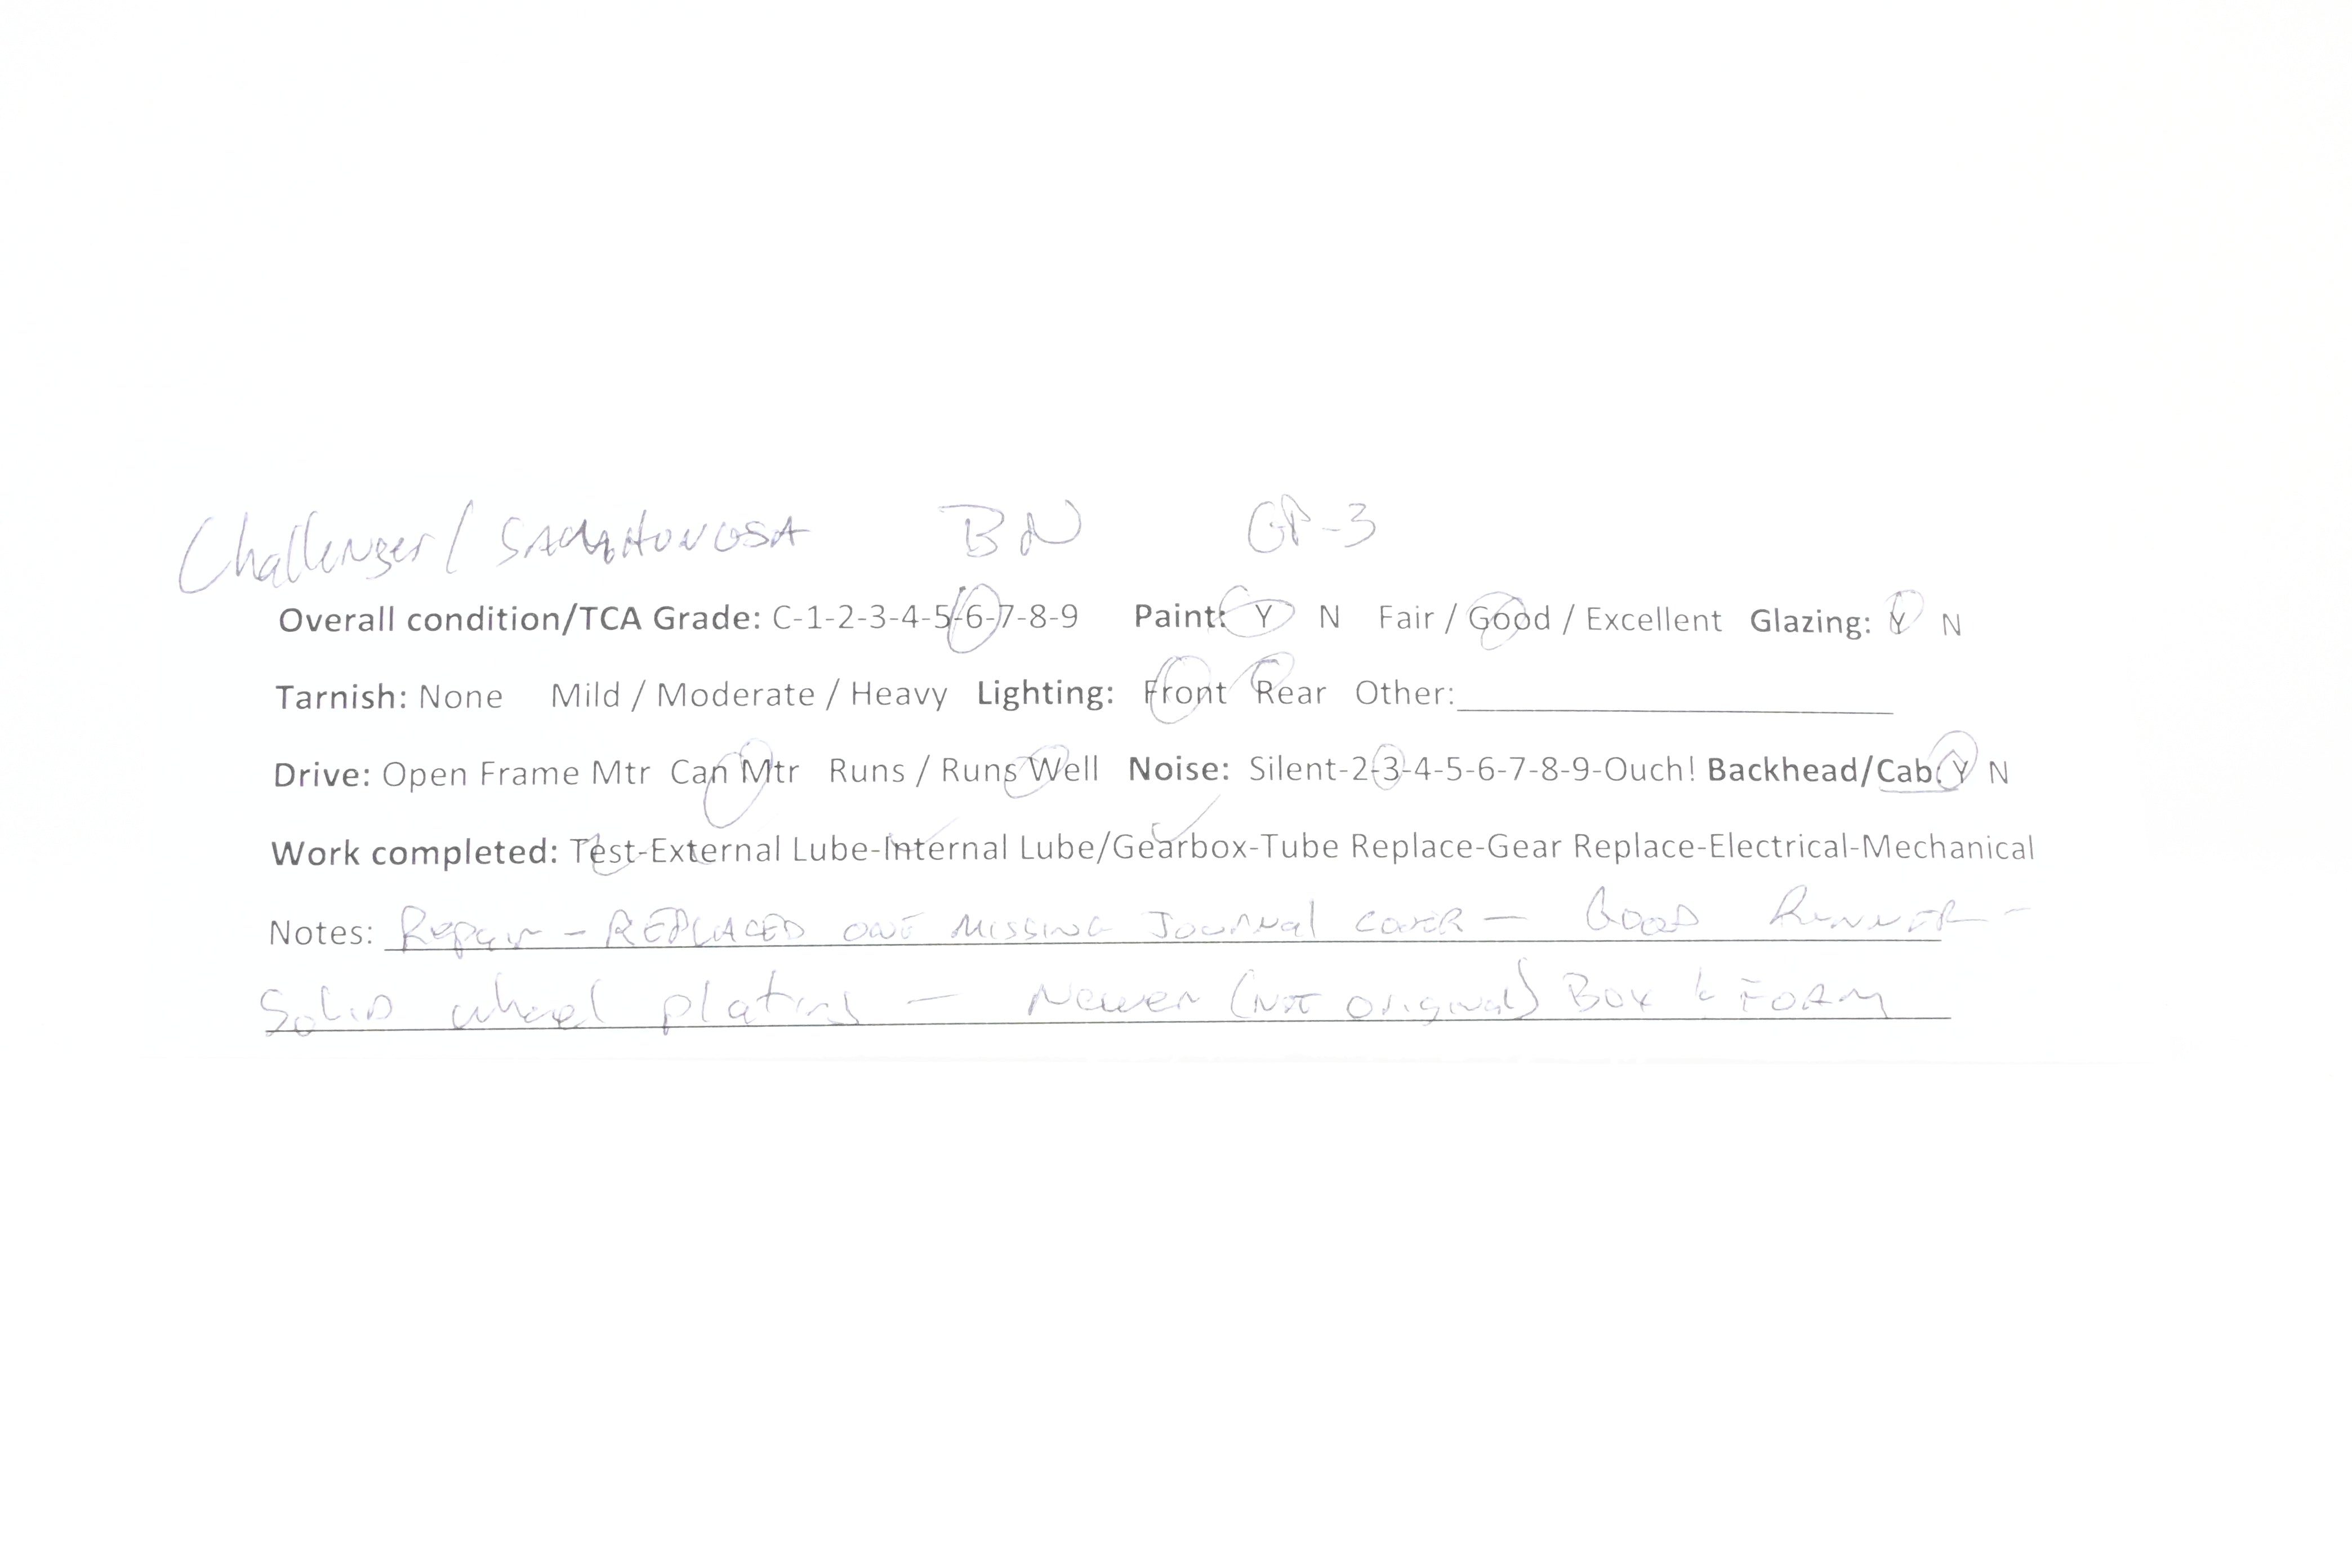 Challenger / BN GP-3
Overall condition/TCA Grade: C-1-2-3-4-5-6-7-8-9 Paint: Y N Fair / Good / Excellent Glazing: Y N
Tarnish: None Mild / Moderate / Heavy Lighting: Front Rear Other:
Drive: Open Frame Mtr Can Mtr Runs / Runs Well Noise: Silent-2-3-4-5-6-7-8-9-Ouch! Backhead/Cab: Y N
Work completed: Test-External Lube-Internal Lube/Gearbox-Tube Replace-Gear Replace-Electrical-Mechanical
Notes: Repair - REPLACED ONE MISSING JOURNAL COVER — GOOD RUNNER -
SOLID wheel plating — Newer (NOT original) Box & FOAM